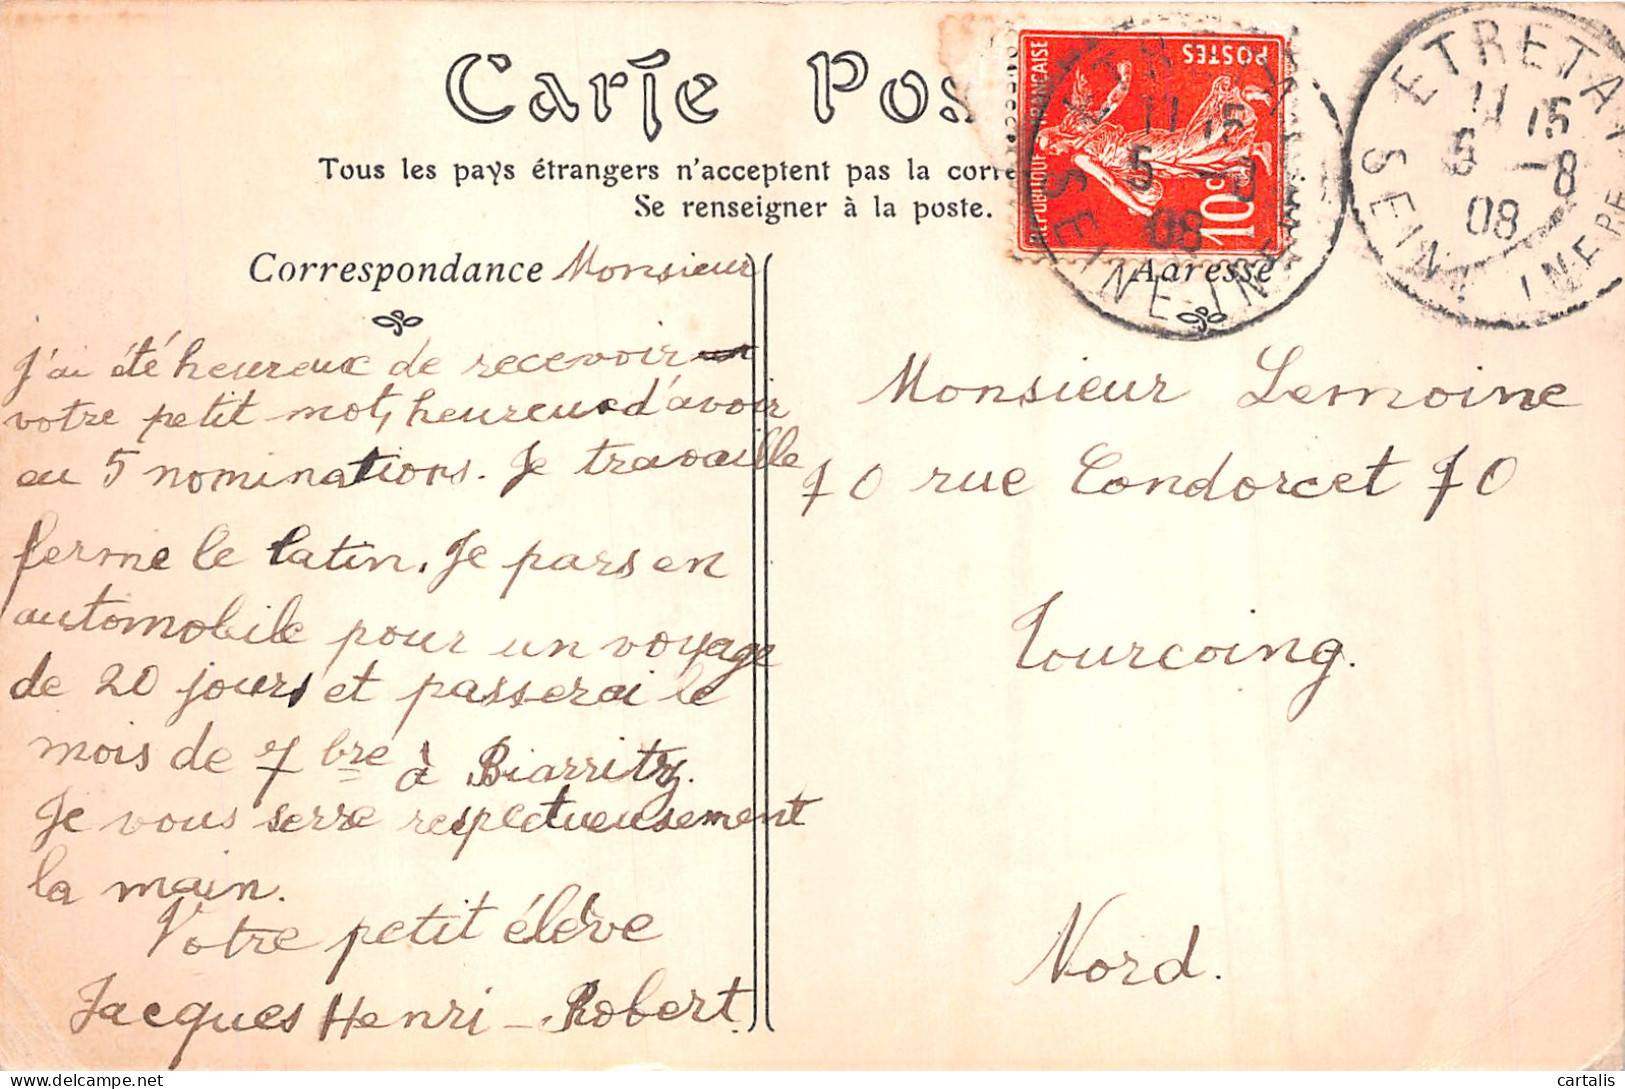 Carte Pos
Tous les pays étrangers n'acceptent pas la corre
Se renseigner à la poste.
Correspondance
Monsieur
J'ai été heureux de recevoir
votre petit mot, heureux d'avoir
eu 5 nominations. Je travaille
ferme le latin. Je pars en
automobile pour un voyage
de 20 jours et passerai le
mois de 7bre à Biarritz.
Je vous serre respectueusement
la main.
Votre petit élève
Jacques Henri-Robert.
RÉPUBLIQUE FRANÇAISE
POSTES
10c
11 15
5 -8
08
SEINE INF
ETRETAT
11 15
5 -8
08
SEINE INFRE
Adresse
Monsieur Lemoine
70 rue Condorcet 70
Tourcoing.
Nord.
cartalis